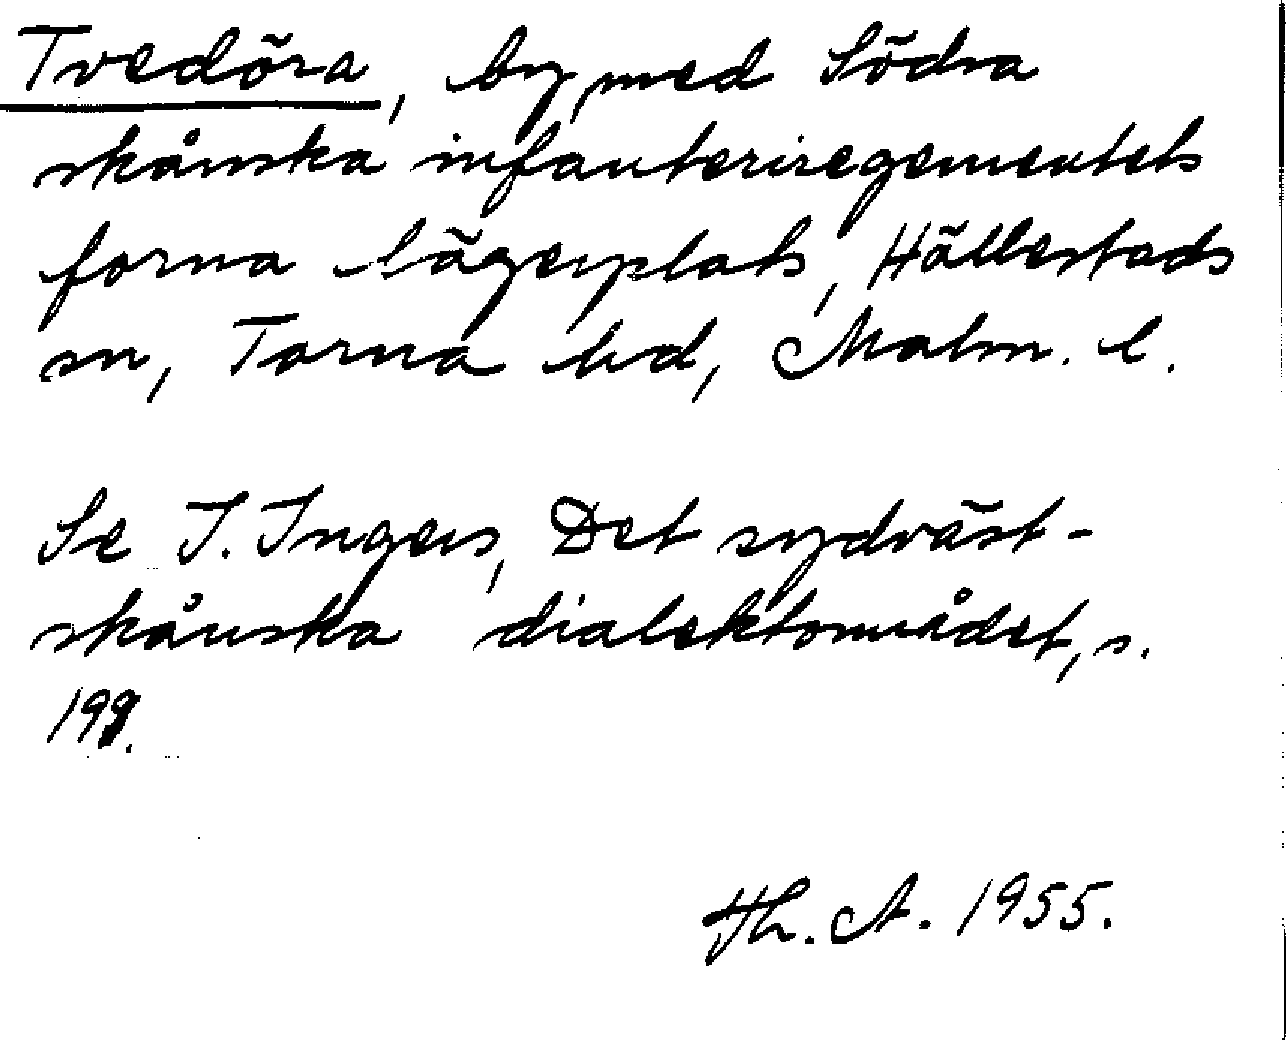 Tvedöra, by med Södra
skånska infanteriregementets
forna lägerplats, Hällestads
sn, Torna hd, Malm. l.
Se I. Ingers, Det sydväst-
skånska dialektområdet, s.
199.
Hh. A. 1955.